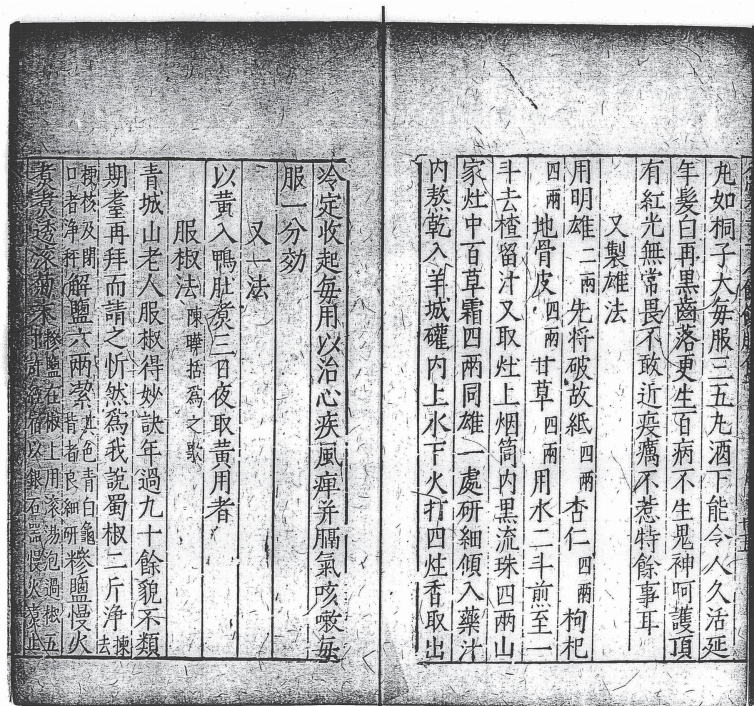 丸如桐子大每服三五丸酒下能令人久活延
年髮白再黑齒落更生百病不生鬼神呵護頂
有紅光無常畏不敢近疫癘不惹特餘事耳
又製雄法
用明雄二兩先將破故紙四兩杏仁四兩枸杞
四兩地骨皮四兩甘草四兩用水二斗煎至一
斗去楂留汁又取灶上烟筒内黑流珠四兩山
家灶中百草霜四兩同雄一處研細傾入藥汁
内熬乾入羊城礶内上水下火打四炷香取出
冷定收起每用以治心疾風痺并膈氣咳嗽每
服一分効
又一法
以黄入鴨肚煑三日夜取黄用者
服椒法陳曄括爲之歌
青城山老人服椒得妙訣年過九十餘貌不類
期耋再拜而請之忻然爲我說蜀椒二斤浄揀去
梗核及閉口者浄秤解鹽六兩潔其色青白龜背者良細研糝鹽慢火
煑煑透滚菊末糝鹽在椒上用滚湯泡過椒五以銀石器慢火煑止